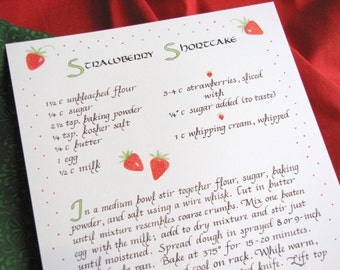 Strawberry Shortcake
1½ c unbleached flour
¼ c sugar
2½ tsp. baking powder
¼ tsp. kosher salt
¼ c butter
1 egg
½ c milk
3-4 c strawberries, sliced
with
¼ c sugar added (to taste)
1 c whipping cream, whipped
In a medium bowl stir together flour, sugar, baking
powder, and salt using a wire whisk. Cut in butter
until mixture resembles coarse crumbs. Mix one beaten
egg with the milk, add to dry mixture and stir just
until moistened. Spread dough in sprayed 8 or 9-inch
pan. Bake at 375° for 15-20 minutes.
cool on rack. While warm,
Lift top